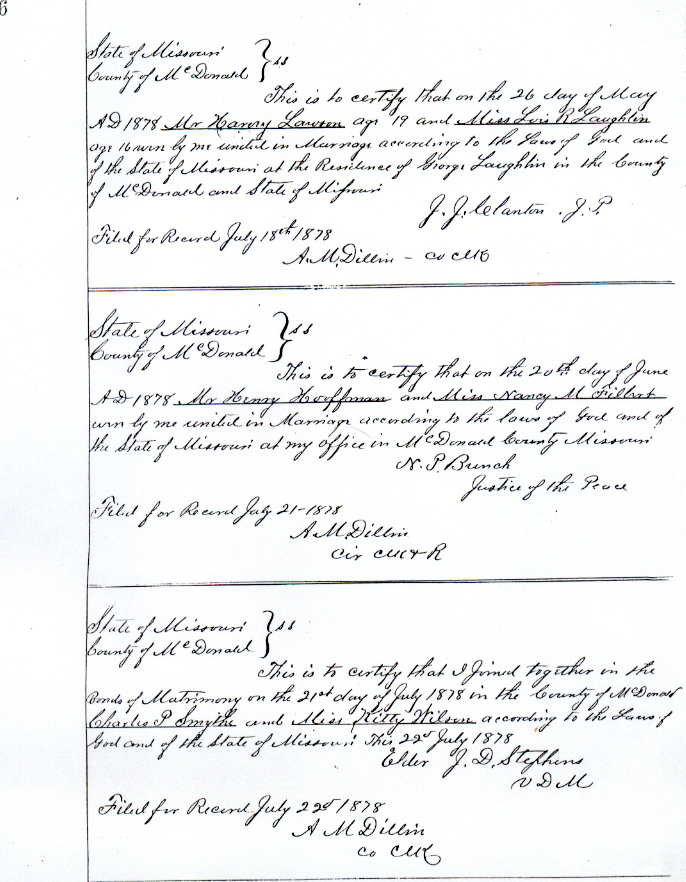 6
State of Missouri
County of McDonald } ss
This is to certify that on the 26 day of May
AD 1878 Mr Harvy Lawson age 19 and Miss Lois R Laughlin
age 16 wrn by me united in Marriage according to the Laws of God and
of the State of Missouri at the Residence of George Laughlin in the County
of McDonald and State of Missouri
J. J. Clanton. J. P.
Filed for Record July 18th 1878
A. M. Dillin - Co Clk
State of Missouri
County of McDonald } ss
This is to certify that on the 20th day of June
AD 1878 Mr Henry Hooffman and Miss Nancy M Filbert
wrn by me united in Marriage according to the laws of God and of
the State of Missouri at my office in McDonald County Missouri
N. P. Bunch
Justice of the Peace
Filed for Record July 21-1878
A M Dillin
Cir Clk & R
State of Missouri
County of McDonald } ss
This is to certify that I Joined together in the
Bonds of Matrimony on the 21st day of July 1878 in the County of McDonald
Charles P Smythe and Miss Kitty Wilson according to the Laws of
God and of the State of Missouri This 22d July 1878
Elder J. D. Stephens
V D M
Filed for Record July 22d 1878
A M Dillin
Co Clk